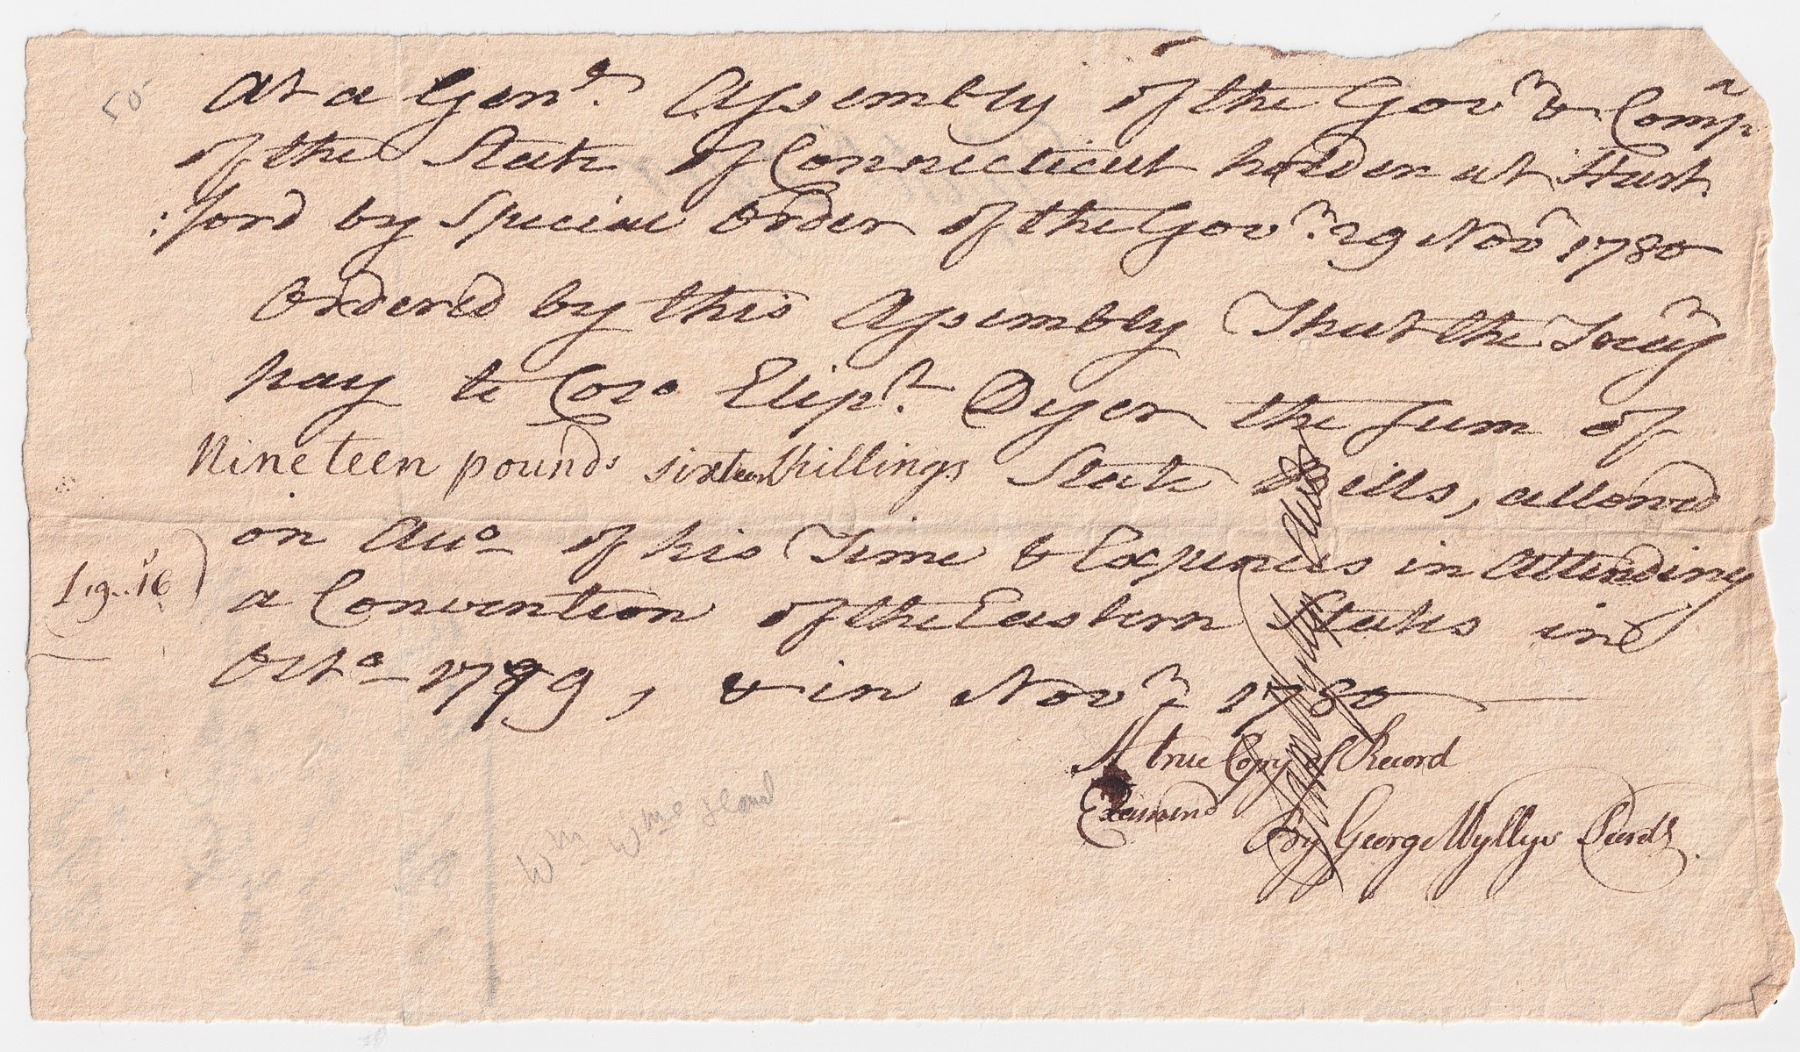 50
At a Gen.l Assembly of the Gov.r & Comp.a
of the State of Connecticut holden at Hart
:ford by Special Order of the Gov.r 29 Nov.r 1780
Ordered by this Assembly That the Treas.r
pay to Col.o Elip.t Dyer the Sum of
Nineteen pounds sixteen Shillings State Bills, allowed
on Acc.o of his Time & Expences in Attending
£19..16
a Convention of the Eastern States in
Oct.o 1779, & in Nov.r 1780
A true Copy of Record
Examind
By George Wyllys Secrets.
W.m W.ms